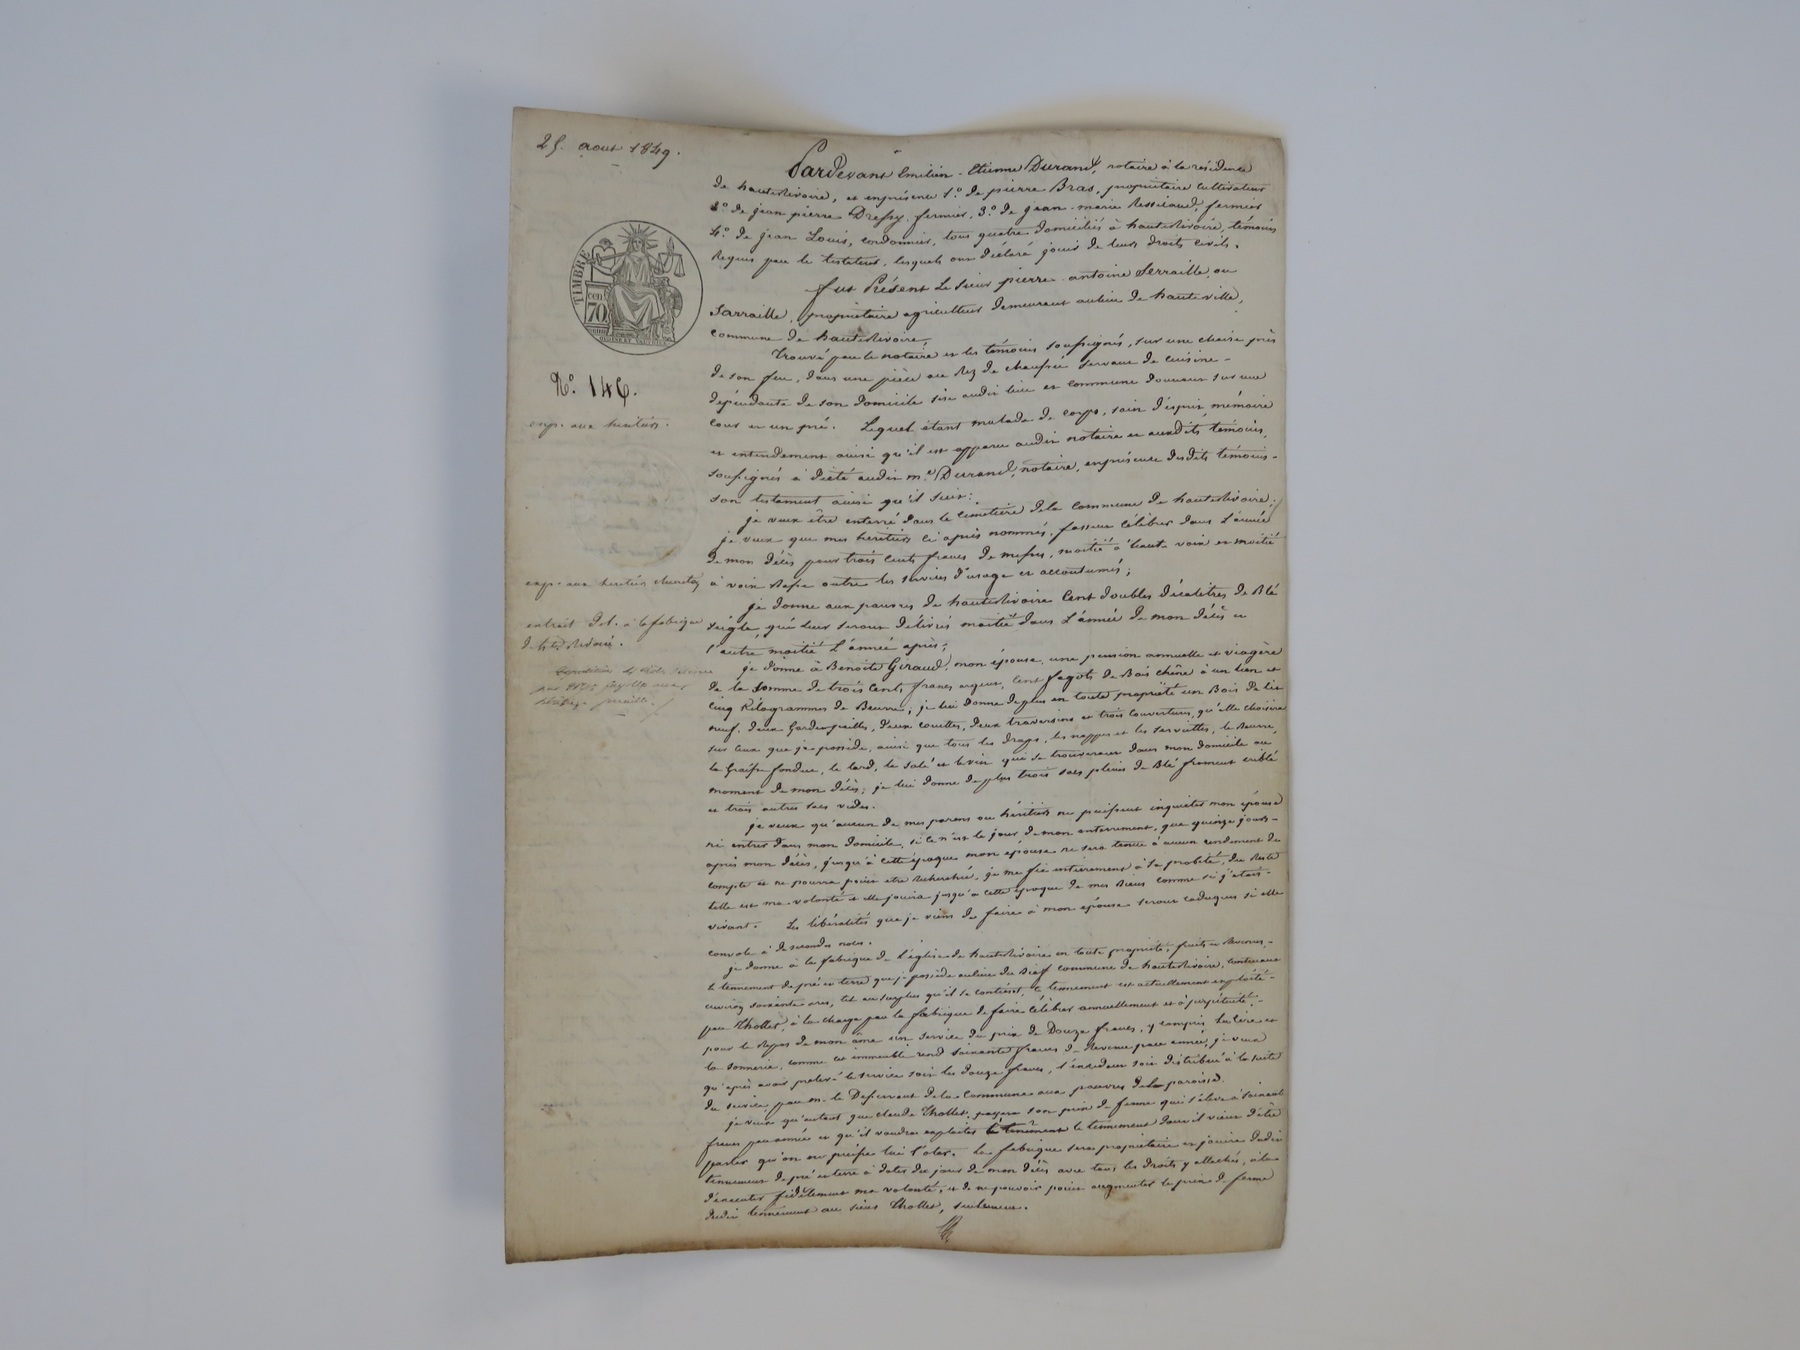 25. aout 1849.
Pardevant Emilien-Etienne Durand, notaire à la résidence
de hauterivoire, et enprésence 1.° de pierre Bras, propriétaire cultivateur
2.° de jean pierre Dressy fermier, 3.° de jean-marie Ressicaud, fermier
4.° de jean Louis, cordonnier, tous quatre domiciliés à hauterivoire, témoins
Requis par le testateur, lesquels ont déclaré jouir de leurs droits civils.
fut Présent Le sieur pierre-antoine Serraille, ou
Sarraille, propriétaire agriculteur demeurant aulieu de hauteville,
commune de hauterivoire.
Trouvé par le notaire et les témoins soussignés, sur une chaise près
de son feu, dans une pièce au Rez de chaussée servant de cuisine-
dépendante de son domicile sise audit lieu et commune donnant sur une
cour et un pré. Lequel étant malade de corps, sain d'esprit, mémoire
et entendement ainsi qu'il est apparu audit notaire et auxdits témoins,
soussignés à dicté audit m.e Durand, notaire, enprésence desdits témoins-
son testament ainsi qu'il suit:
je veux être enterré dans le cimetière dela commune de hauterivoire;
je veux que mes héritiers ci après nommés, fassent célébrer dans l'année
de mon décès pour trois cents francs de messes, moitié à haute voix et moitié
à voix Basse outre les services d'usage et accoutumés;
je donne aux pauvres de hauterivoire Cent doubles décalitres de Blé
seigle, qui leur seront délivrés moitié dans l'année de mon décès et
l'autre moitié l'année après;
je donne à Benoite Giraud, mon épouse, une pension annuelle et viagère
de la somme de trois Cents francs argent, Cent fagots de Bois chêne à un lien et
cinq Kilogrammes de Beurre; je lui donne deplus en toute propriété un Bois de lit
neuf, deux Gardepailles, deux couettes, deux traversins et trois couvertures, qu'elle choisira
sur ceux que je possède, ainsi que tous les draps, les nappes et les serviettes, le Beurre,
la Graisse fondue, le lard, le salé et le vin qui se trouveront dans mon domicile au
moment de mon décès; je lui donne deplus trois sacs pleins de Blé froment criblé
et trois autres sacs vides.
je veux qu'aucun de mes parens ou héritiers ne puissent inquiéter mon épouse
ni entrer dans mon domicile, si ce n'est le jour de mon enterrement, que quinze jours-
après mon décès, jusqu'à cette époque mon épouse ne sera tenue à aucun rendement de
compte et ne pourra point être Recherchée, je me fie entièrement à sa probité; du Reste
telle est ma volonté et elle jouira jusqu'à cette époque de mes Biens comme si j'étais-
vivant. Les libéralités que je viens de faire à mon épouse seront caduques si elle
convole à de secondes noces.
je donne à la fabrique de l'église de hauterivoire en toute propriété, fruits et Revenus,-
le tennement de pré et terre que je possède aulieu du commune de hauterivoire, contenant
environ soixante ares, tel au surplus qu'il se contient, le tennement est actuellement exploité-
par Thollet, à la charge par la fabrique de faire célébrer annuellement et à perpétuité,-
pour le Repos de mon âme un service du prix de Douze francs, y compris la cire et
la sonnerie, comme cet immeuble rend soixante francs de Revenu par année, je veux
qu'après avoir prélevé le service soit les douze francs, l'excédent soit distribué à la suite
du service, par m. le Desservant dela commune aux pauvres dela paroisse.
je veux qu'autant que claude Thollet, payera son prix de ferme qui s'élève à soixante
francs par année et qu'il voudra exploiter le tennement dont il vient d'être
parlé, qu'on ne puisse lui l'oter. La fabrique sera propriétaire et jouira dudit
tennement de pré et terre à dater du jour de mon décès avec tous les droits y attachés, à la
d'exécuter fidèlement ma volonté, et de ne pouvoir point augmenter le prix de ferme
dudit tennement au sieur Thollet, seulement.
TIMBRE
CEN
70
N.° 146.
exp. aux héritiers.
exp. aux héritiers
extrait dél. à la fabrique